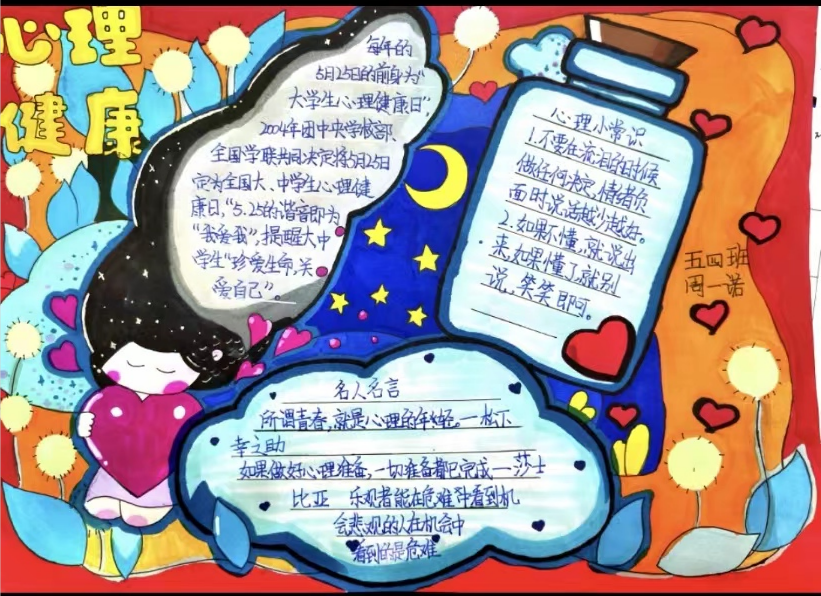 心理
健康
每年的
5月25日的前身为“
大学生心理健康日”,
2004年团中央学校部、
全国学联共同决定将5月25日
定为全国大、中学生心理健
康日,“5.25的谐音即为
“我爱我”,提醒大中
学生“珍爱生命,关
爱自己”。
心理小常识
1.不要在流泪的时候
做任何决定,情绪负
面时说话越少越好。
2.如果不懂,就说出
来,如果懂了,就别
说,笑笑即可。
五四班
周一诺
名人名言
所谓青春,就是心理的年轻。一松下
幸之助
如果做好心理准备,一切准备都已完成—莎士
比亚 乐观者能在危难中看到机
会悲观的人在机会中
看到的是危难